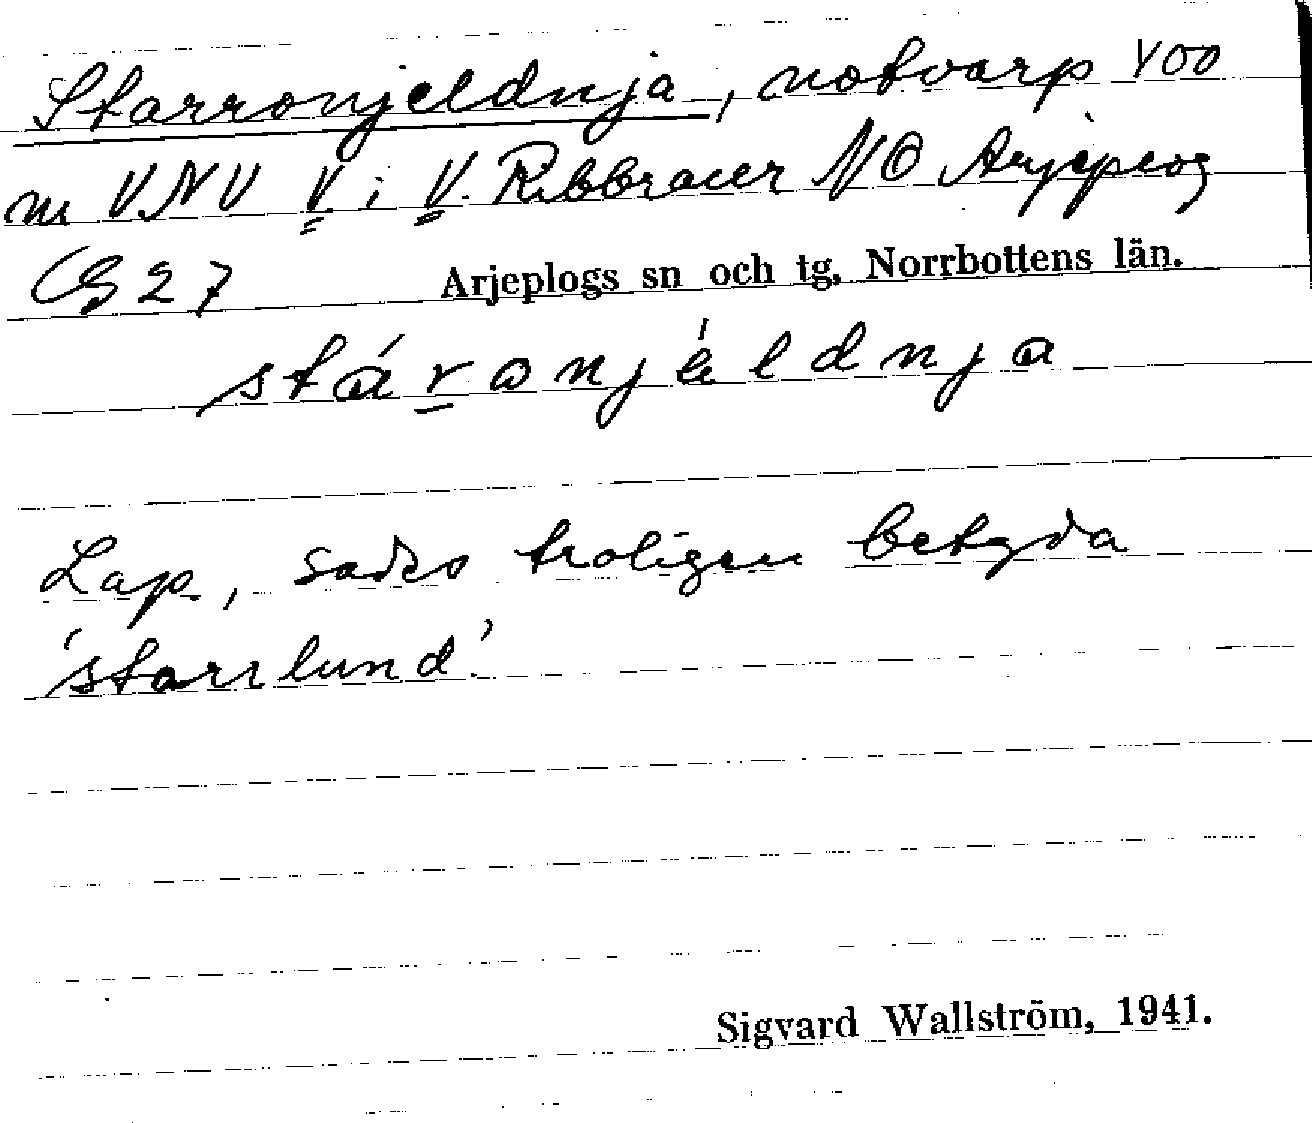 Starronjeldnja, notvarp 400
m VNV V i V. Ribbraur NO Arjeplog
CG 27 Arjeplogs sn och tg, Norrbottens län.
stáronjéldnja
Lap., sades troligen betyda
'starrlund'.
Sigvard Wallström, 1941.